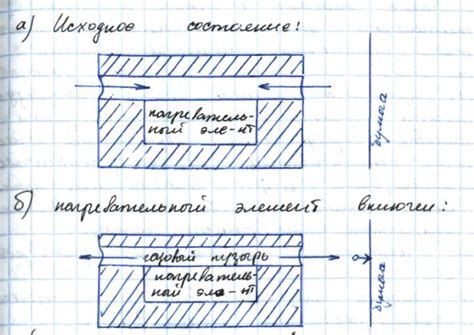 а) Исходное состояние:
нагреватель-
ный эле-нт
бумага
б) нагревательный элемент включен:
газовый пузырь
нагреватель-
ный эле-нт
бумага